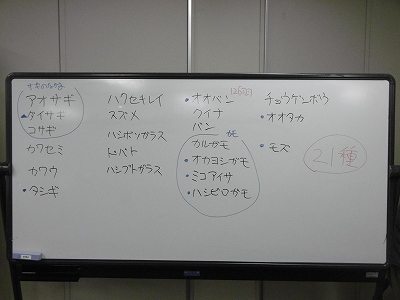 サギのなかま
アオサギ
・ダイサギ
コサギ
カワセミ
カワウ
・タシギ
ハクセキレイ
スズメ
ハシボソガラス
ドバト
ハシブトガラス
・オオバン
クイナ
バン
カモ
カルガモ
・オカヨシガモ
・ミコアイサ
・ハシビロガモ
チョウゲンボウ
・オオタカ
・モズ
21種